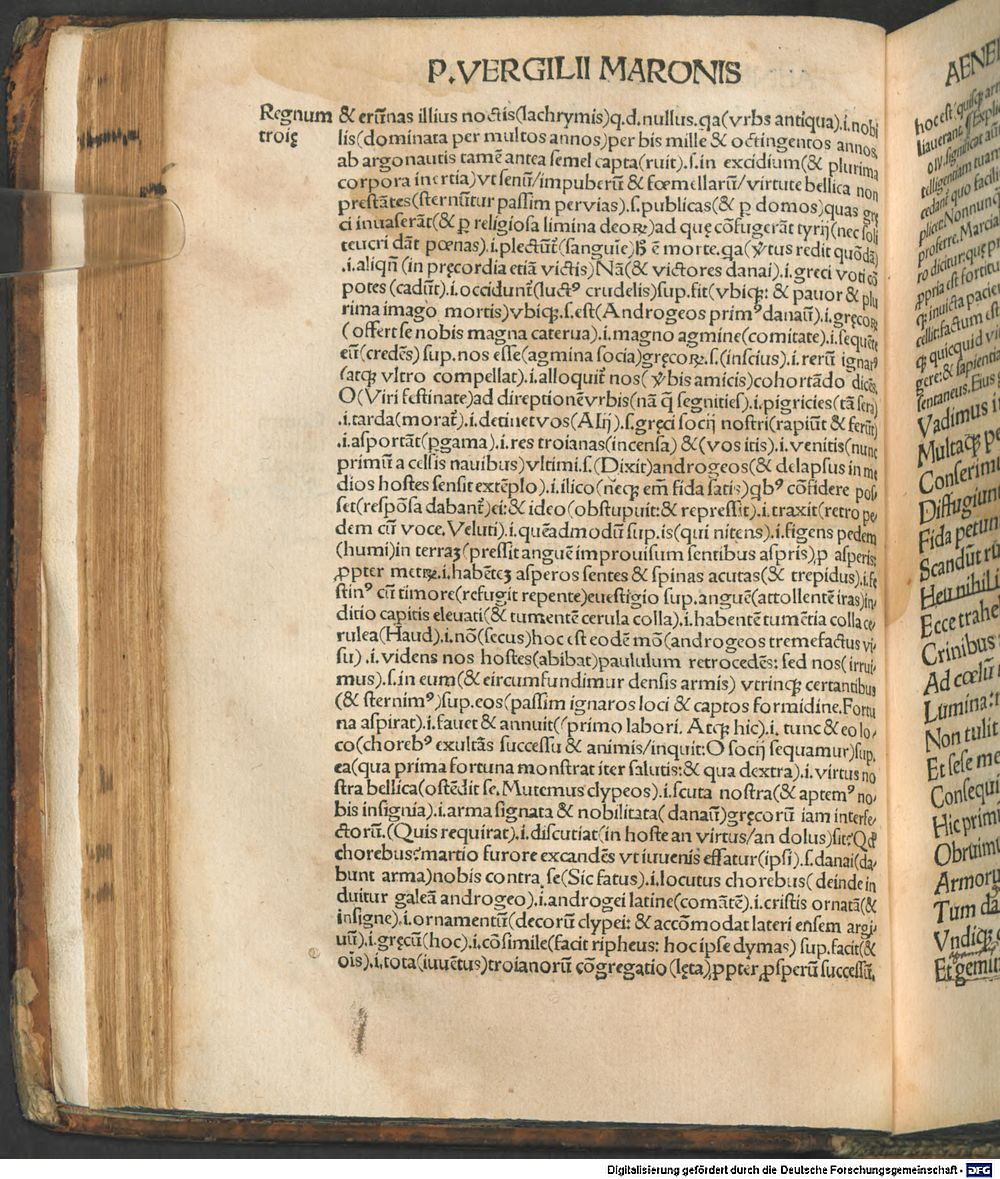 P.VERGILII MARONIS
Regnum
troię
& erūnas illius noctis(lachrymis)q.d.nullus.qa(vrbs antiqua).i.nobi
lis(dominata per multos annos)per bis mille & octingentos annos,
ab argonautis tamē antea semel capta(ruit).s.in excidium(& plurima
corpora inertia)vt senū/impuberū & fœmellarū/virtute bellica non
prestātes(sternūtur passim pervias).s.publicas(& ꝑ domos)quas grę
ci inuaserāt(& ꝑ religiosa limina deoꝝ)ad quę cōfugerāt tyrij(nec soli
teucri dāt pœnas).i.plectūt᷑(sanguīe)
ē morte.qa(
tus redit quōdā)
.i.aliqñ(in pręcordia etiā victis)Nā(& victores danai).i.greci voti cō
potes(cadūt).i.occidunt᷑(luctꝰ crudelis)sup.fit(vbiqꝫ: & pauor & plu
rima imago mortis)vbiqꝫ.s.est(Androgeos primꝰ danaū).i.gręcoꝝ
(offert se nobis magna caterua).i.magno agmine(comitate).i.sequēte
eū(credēs)sup.nos esse(agmina socia)gręcoꝝ.s.(inscius).i.rerū ignarꝰ
(atqꝫ vltro compellat).i.alloquit᷑ nos(
bis amicis)cohortādo dicēs.
O(Viri festinate)ad direptionē vrbis(nā q̄ segnities).i.pigricies(tā sera)
.i.tarda(morat᷑).i.detinet vos(Alij).s.gręci socij nostri(rapiūt & ferūt)
.i.asportāt(ꝑgama).i.res troianas(incensa) &(vos itis).i.venitis(nunc
primū a celsis nauibus)vltimi.s.(Dixit)androgeos(& delapsus in me
dios hostes sensit extēplo).i.ilico(neqꝫ em̄ fida satis)qbꝰ cōfidere pos
set(respōsa dabant᷑)ei:& ideo(obstupuit:& repressit).i.traxit(retro pe
dem cū voce.Veluti).i.quēadmodū sup.is(qui nitens).i.figens pedem
(humi)in terraꝫ(pressit anguē improuisum sentibus aspris)ꝓ asperis:
ꝓpter metꝝ.i.habēteꝫ asperos sentes & spinas acutas(& trepidus).i.fe
stinꝰ cū timore(refugit repente)euestigio sup.anguē(attollentē iras)in
ditio capitis eleuati(& tumentē cerula colla).i.habentē tumētia colla ce
rulea(Haud).i.nō(secus)hoc est eodē mō(androgeos tremefactus vi
su).i.videns nos hostes(abibat)paululum retrocedēs: sed nos(irrui
mus).s.in eum(& circumfundimur densis armis) vtrinqꝫ certantibus
(& sternimꝰ)sup.eos(passim ignaros loci & captos formidine.Fortu
na aspirat).i.fauet & annuit((primo labori. Atqꝫ hic).i. tunc & eo lo/
co(chorebꝰ exultās successu & animis/inquit:O socij sequamur)sup.
ea(qua prima fortuna monstrat iter salutis:& qua dextra).i.virtus no
stra bellica(ostēdit se.Mutemus clypeos).i.scuta nostra(& aptemꝰ no/
bis insignia).i.arma signata & nobilitata(danaū)gręcorū iam interfe/
ctorū.(Quis requirat).i.discutiat(in hoste an virtus/an dolus)sit?
chorebus?martio furore excandēs vt iuuenis effatur(ipsi).s.danai(da/
bunt arma)nobis contra se(Sic fatus).i.locutus chorebus(deinde in
duitur galeā androgeo).i.androgei latine(comātē).i.cristis ornatā(&
insigne).i.ornamentū(decorū clypei: & accōmodat lateri ensem argi/
uū).i.gręcū(hoc).i.cōsimile(facit ripheus: hoc ipse dymas) sup.facit(&
oīs).i.tota(iuuētus)troianorū cōgregatio(lęta)ꝓpter ꝓsperū successū.
AENEI
hoc est
liauerant
significat
plicet:Nonnunqꝫ
proferre.Marcia
ro dicitur:
inuicta pacie
quicquid vi
gere:& sapientia
sentaneus.Eius
Vadimus i
Multaqꝫ pe
Conserim
Diffugiunt
Fida petun
Scandūt
Heu nihil i
Ecce trahe
Crinibus
Ad cœlū
Lumina:
Non tulit
Et sese me
Consequi
Hic prim
Obruimu
Armoru
Tum dā
Vndiqꝫ
Et gemi
Digitalisierung gefördert durch die Deutsche Forschungsgemeinschaft - DFG